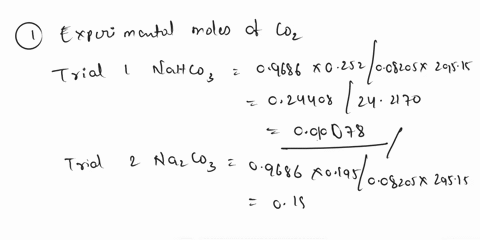 ① Experimental moles of CO2
Trial 1 NaHCO3 = 0.9686 × 0.252 / 0.08205 × 295.15
= 0.24408 / 24.2170
= 0.010078
Trial 2 Na2CO3 = 0.9686 × 0.195 / 0.08205 × 295.15
= 0.15